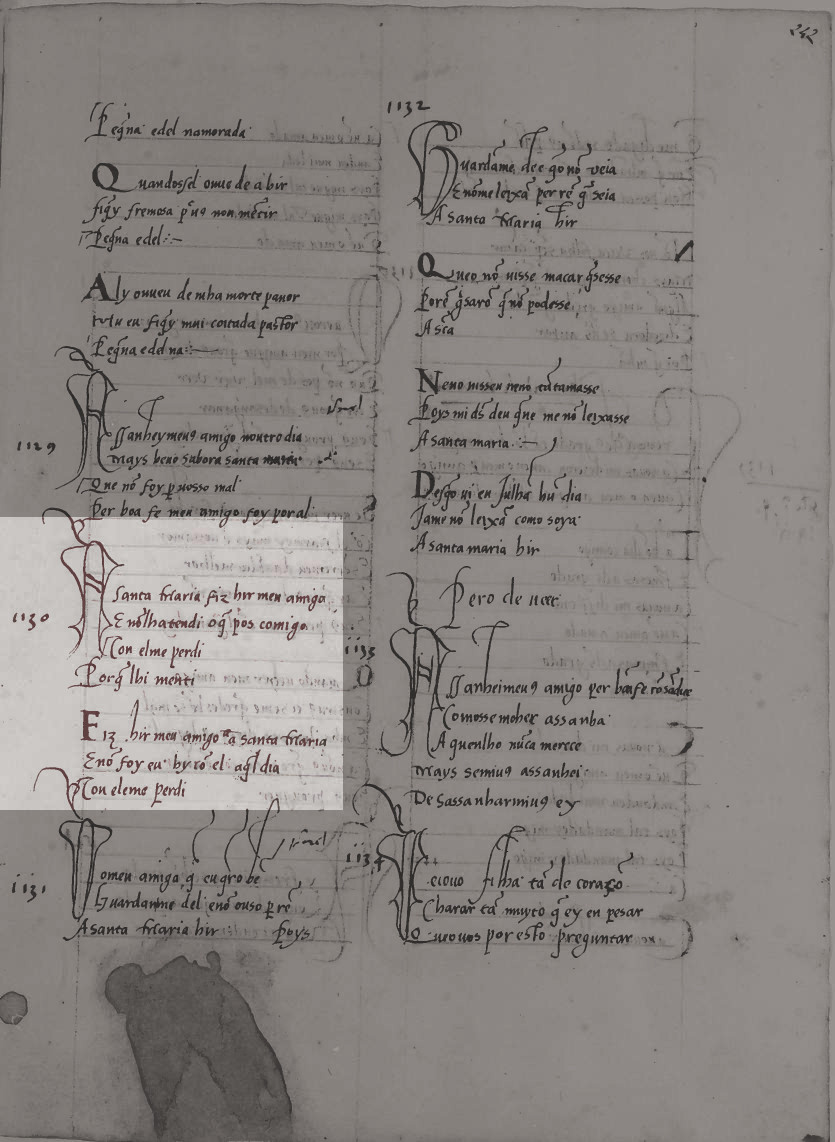 242
Peg̃na edel namorada
Quandossel ouue de a bir
fiq̃y fremosa pʳ uꝯ non mẽtir
Peg̃na edel:~
Aly ouueu de mha morte pauor
hu eu fiq̃y mui coitada pastor
Peg̃na edel na:~
1129
Assanheymeuꝯ amigo noutro dia
Mays beno sabora santa maria
Que nõ foy p̱ uosso mal
Per boa fe meu amigo foy por al
1130
A Santa Maria fiz hir meu amigo
E nõ lhatendi o q̃ pos comigo
Non elme perdi
Porq̃ lhi menti
Fiz hir meu amigo ᵃa santa Maria
E nõ foy eu hy cõ el aq̃l dia
Non eleme perdi
1131
Pomeu amigo q̃ eu gro bẽ
Guardanme del enõ ouso p̱ rẽ
A santa Maria hir: Poys
1132
Guardãme de egõ nõ ueia
Enõmeleixã per rẽ q̃ seia
A Santa Maria hir
Queo nõ uisse macar q̃sesse
Porẽ g̃saro q̃ nõ podesse
A sc̃a
Neno uisseu neno tãtamasse
Poys mi ds̃ deu q̃ne me nõ leixasse
A santa maria:~
Desq̃o ui en Julhã hũ dia
Jame nõ leixã como soya
A santa maria hir
Pero de ueer
1133
Assanheimeuꝯ amigo per bõafe cõ sãdice
Comosse moher assanha
A quenlho nũca merece
Mays semiuꝯ assanhei
Desassanharmiuꝯ ey
1134
Veiouo filha tã de coraçõ
Charar tã muyto q̃ ey en pesar
Queuos por esto preguntar